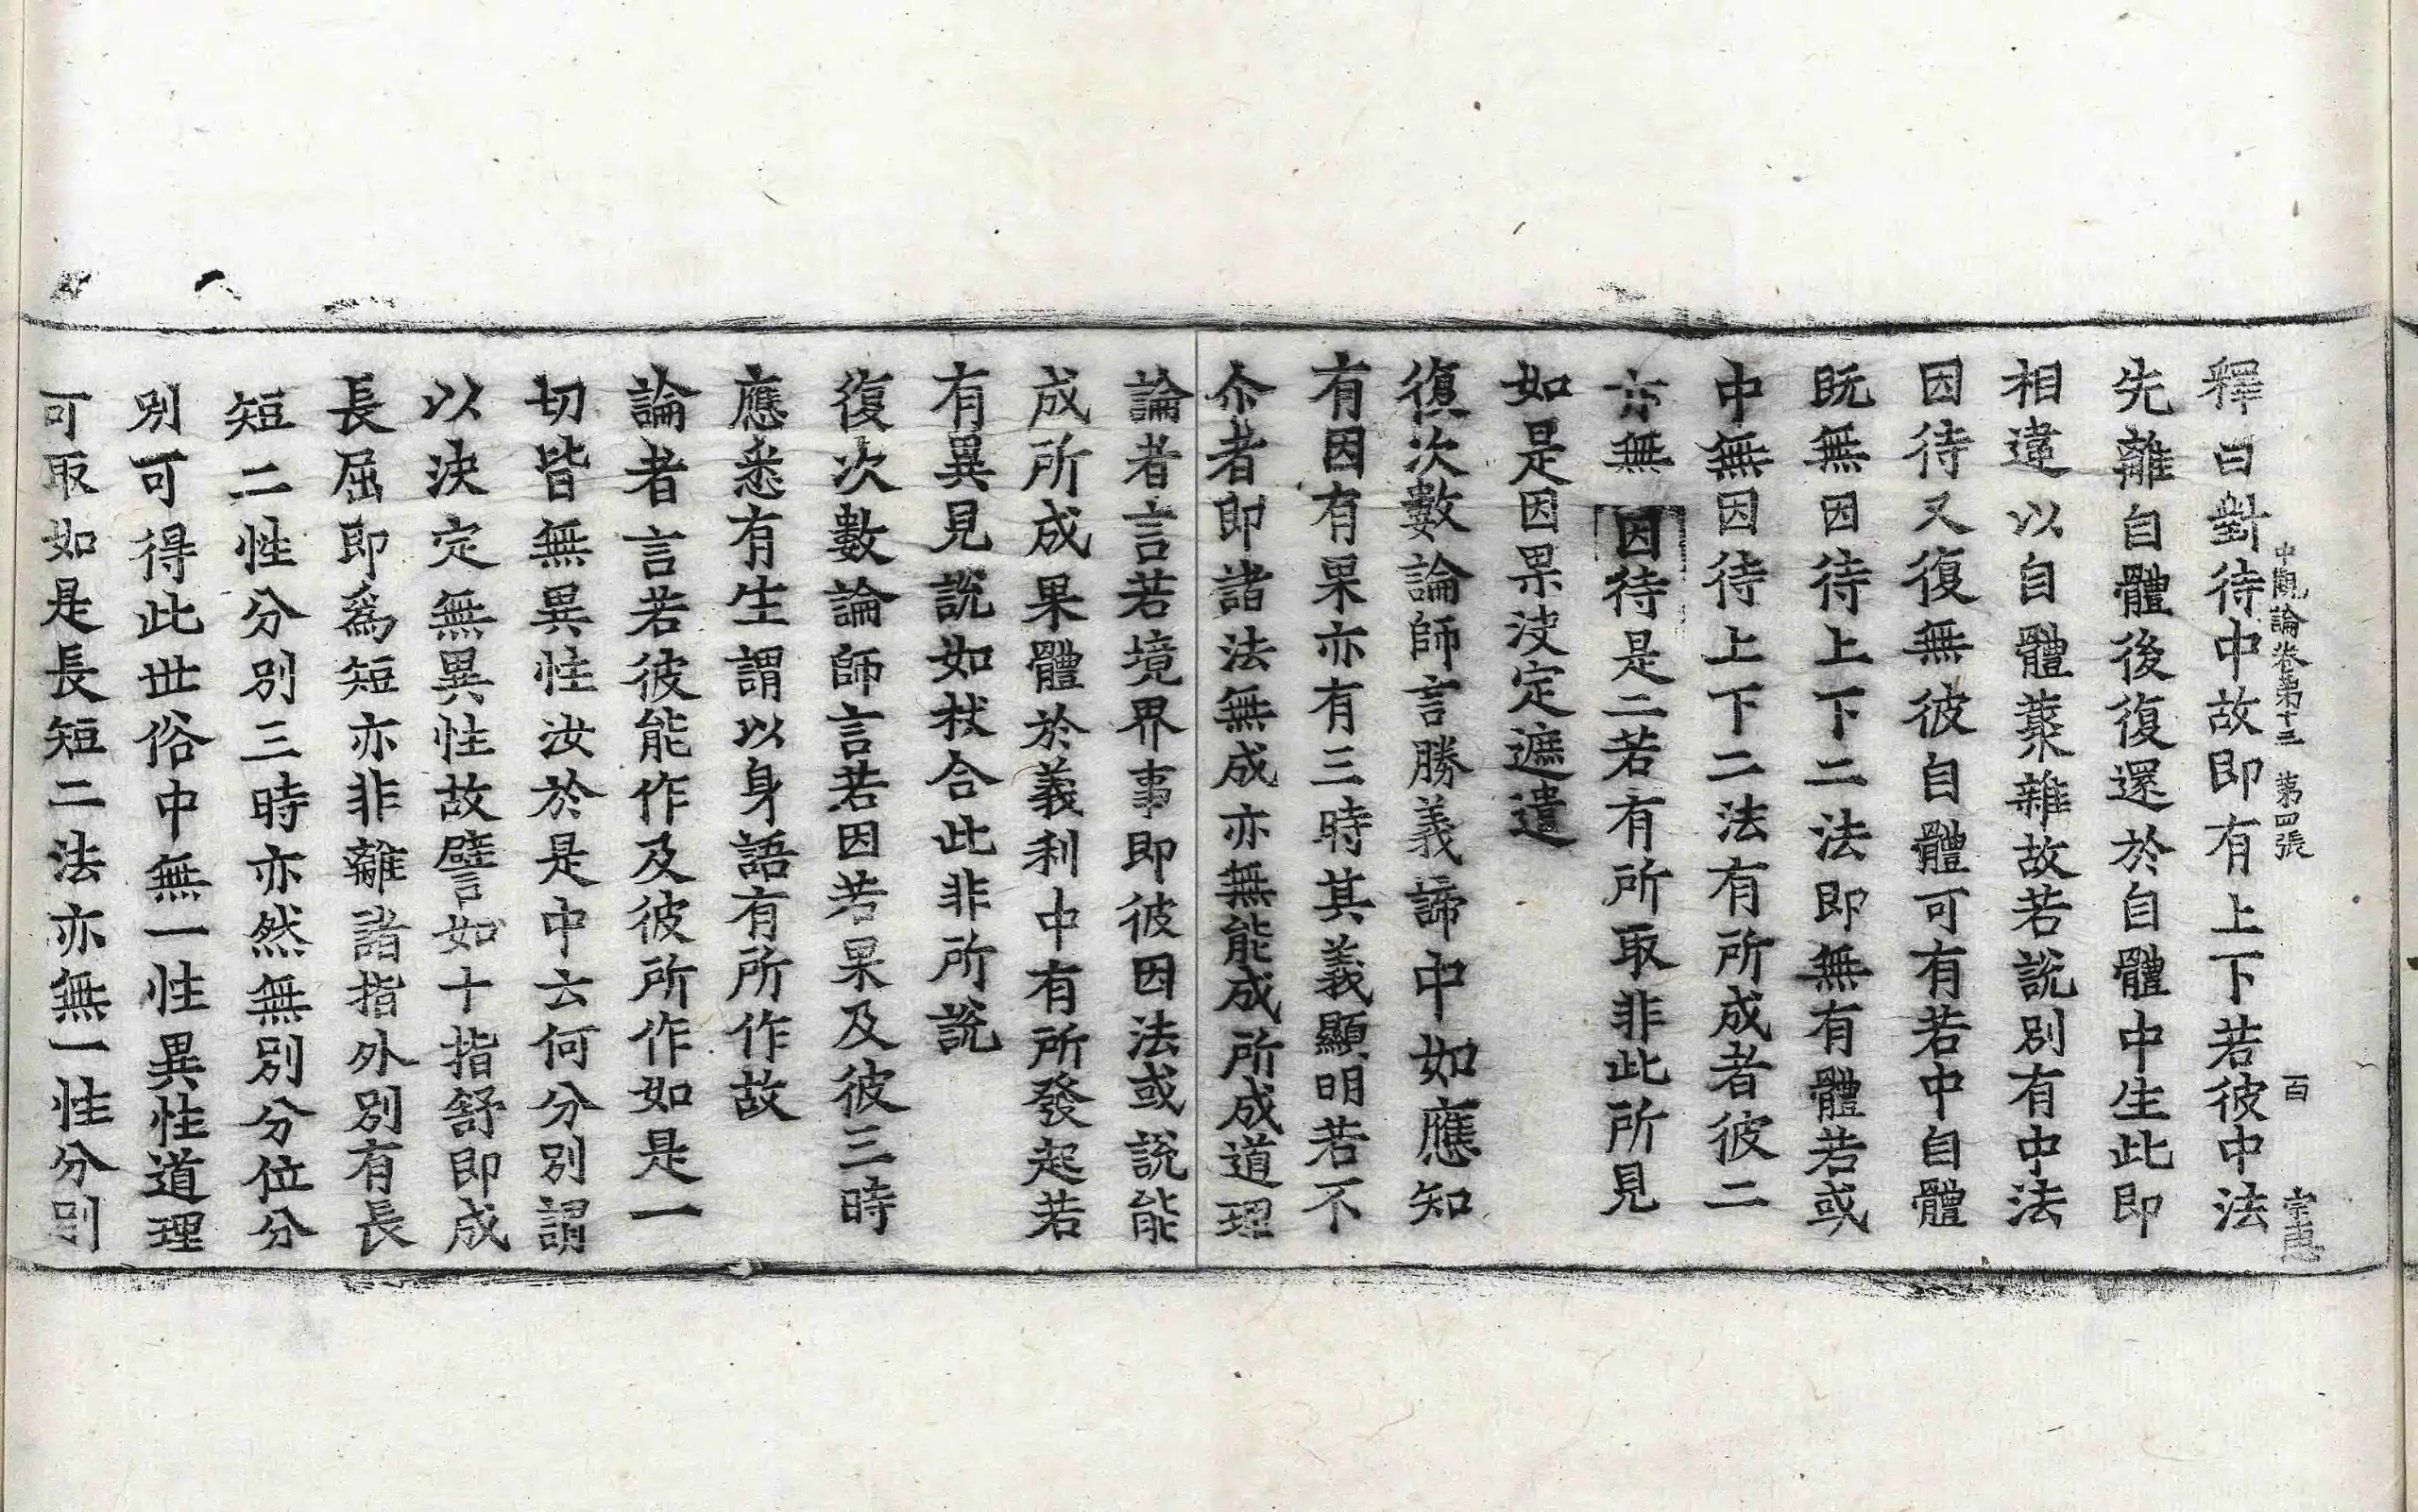 中觀論卷第十三 第四張 百 宗惠
釋曰對待中故即有上下若彼中法
先離自體後復還於自體中生此即
相違以自體蘂雜故若說別有中法
因待又復無彼自體可有若中自體
既無因待上下二法即無有體若或
中無因待上下二法有所成者彼二
亦無因待是二若有所取非此所見
如是因果决定遮遣
復次數論師言勝義諦中如應知
有因有果亦有三時其義顯明若不
尒者即諸法無成亦無能成所成道理
論者言若境界事即彼因法或說能
成所成果體於義利中有所發起若
有異見說如杖合此非所說
復次數論師言若因若果及彼三時
應悉有生謂以身語有所作故
論者言若彼能作及彼所作如是一
切皆無異性汝於是中云何分別謂
以决定無異性故譬如十指舒即成
長屈即爲短亦非離諸指外別有長
短二性分別三時亦然無別分位分
別可得此世俗中無一性異性道理
可取如是長短二法亦無一性分別